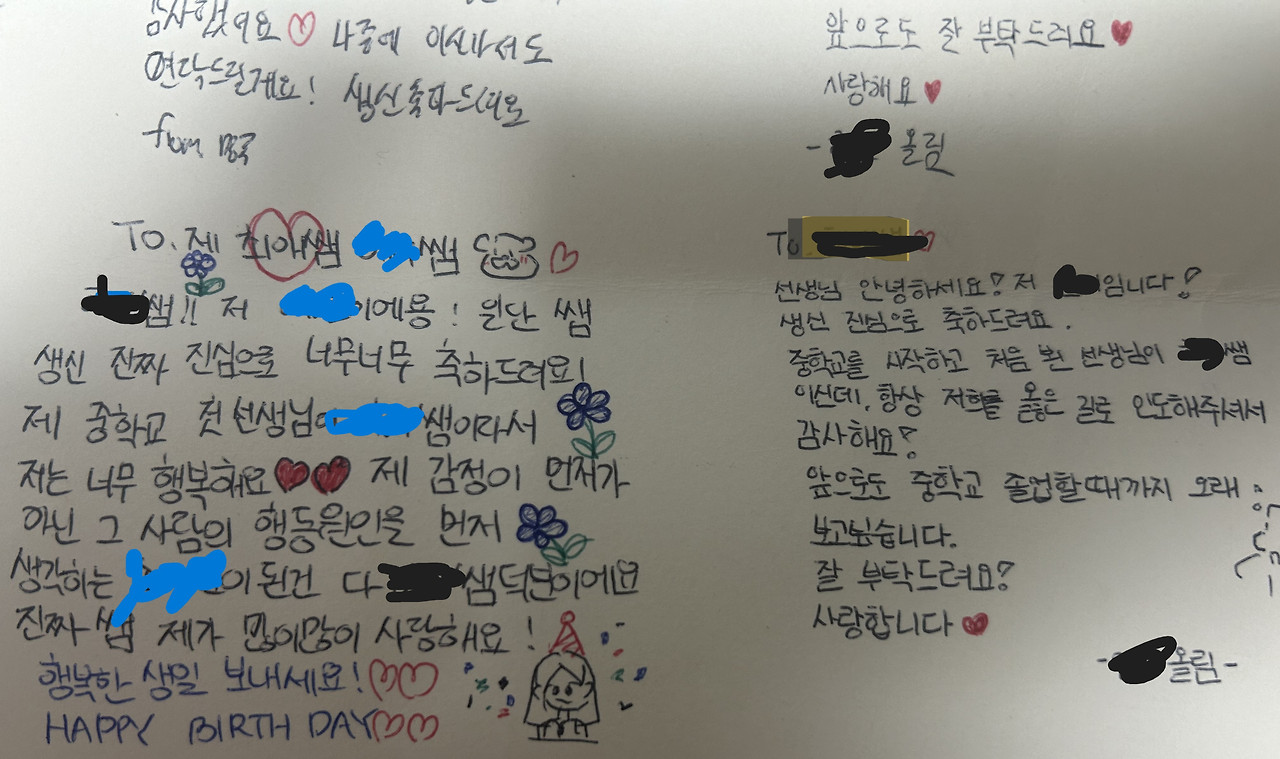 감사했어요
나중에 이사가서도
연락드릴게요! 생신축하드려요
from
To. 제 최애쌤 쌤
쌤!! 저 이에용! 일단 쌤
생신 진짜 진심으로 너무너무 축하드려요!
제 중학교 첫 선생님이 쌤이라서
저는 너무 행복해요 제 감정이 먼저가
아닌 그 사람의 행동원인을 먼저
생각하는 이 된건 다 쌤덕분이에요
진짜 쌤 제가 많이많이 사랑해요!
행복한 생일 보내세요!
HAPPY BIRTH DAY
앞으로도 잘 부탁드려요
사랑해요
- 올림
To
선생님 안녕하세요? 저 입니다!
생신 진심으로 축하드려요.
중학교를 시작하고 처음 뵌 선생님이 쌤
이신데, 항상 저희를 옳은 길로 인도해주셔서
감사해요!
앞으로도 중학교 졸업할때까지 오래
보고싶습니다.
잘 부탁드려요?
사랑합니다
- 올림 -